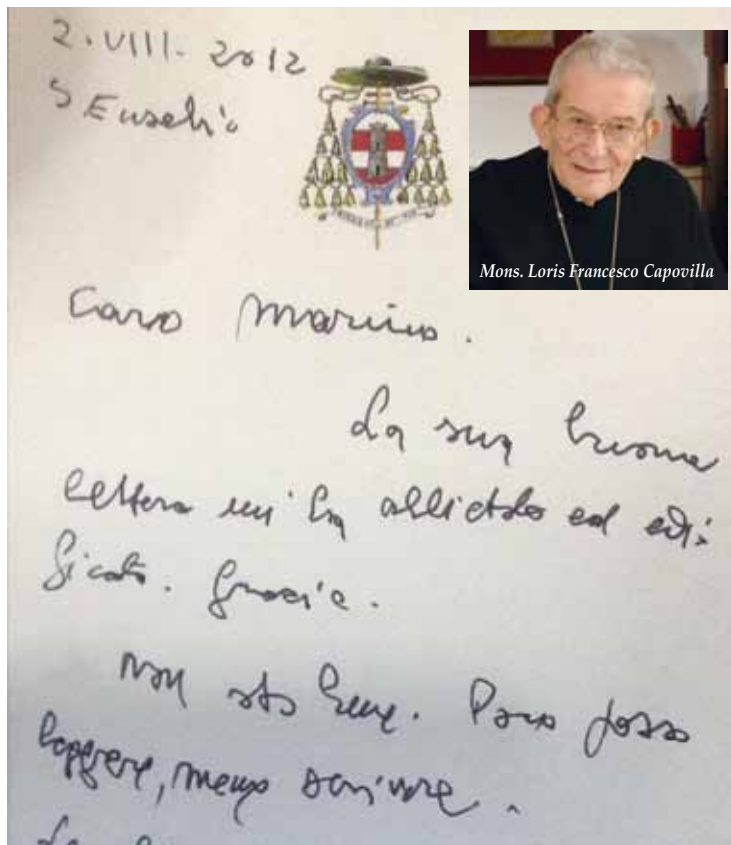 2.VIII. 2012
S Eusebio
Mons. Loris Francesco Capovilla
Caro Marino.
La sua buona
lettera mi ha allietato ed edi-
ficato. Grazie.
Non sto bene. Poco posso
leggere, meno scrivere.